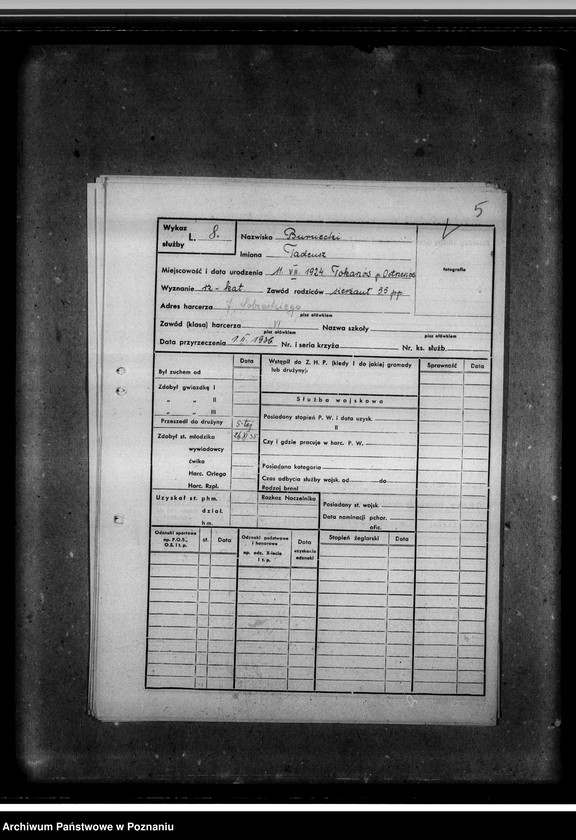 5
Wykaz
L. 8.
służby
Nazwisko Burnecki
Imiona Tadeusz
fotografia
Miejscowość i data urodzenia 11 VII. 1924
Wyznanie rz-kat Zawód rodziców sierżant 55 pp
Adres harcerza J. Sobieskiego
pisać ołówkiem
Zawód (klasa) harcerza VI Nazwa szkoły
pisać ołówkiem
pisać ołówkiem
Data przyrzeczenia 1936 Nr. i seria krzyża Nr. ks. służb.
Data
Był zuchem od
Zdobył gwiazdkę I
" " II
" " III
Przeszedł do drużyny
Zdobył st. młodzika
wywiadowcy
ćwika
Harc. Orlego
Harc. Rzpl.
Wstąpił do Z. H. P. (kiedy i do jakiej gromady
lub drużyny):
Służba wojskowa
Posiadany stopień P. W. i data uzysk.
II
Czy i gdzie pracuje w harc. P. W.
Posiadana kategoria
Czas odbycia służby wojsk. od do
Rodzaj broni
Sprawność Data
Uzyskał st. phm.
dział.
hm.
Rozkaz Naczelnika
Posiadany st. wojsk.
Data nominacji pchor.
ofic.
Odznaki sportowe
np. P.O.S.,
O.S. i t. p.
st. Data
Odznaki państwowe
i honorowe
np. odz. X-lecia
i t. p.
Data
uzyskania
odznaki
Stopień żeglarski Data
Archiwum Państwowe w Poznaniu